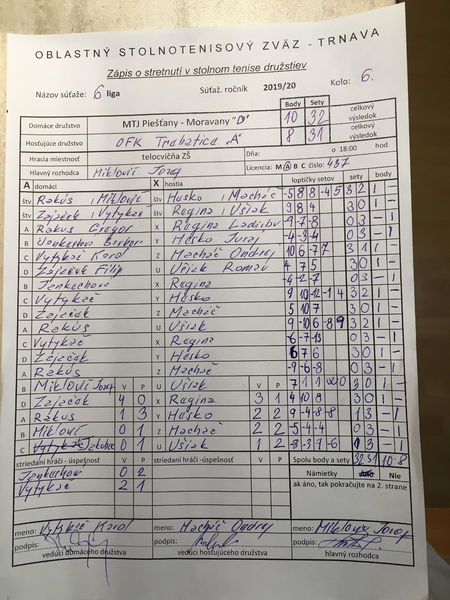 OBLASTNÝ STOLNOTENISOVÝ ZVÄZ - TRNAVA
Zápis o stretnutí v stolnom tenise družstiev
Názov súťaže: 6 liga Súťaž. ročník 2019/20 Kolo: 6.
Body Sety
Domáce družstvo MTJ Piešťany - Moravany "D" 10 32 celkový výsledok
Hosťujúce družstvo OFK Trebatice "A" 8 31 celkový výsledok
Hracia miestnosť telocvičňa ZŠ Dňa: o 18:00 hod.
Hlavný rozhodca Miklovič Jozef Licencia: M A B C číslo: 437
A domáci X hostia loptičky setov sety body
štv Rakús, Miklovič štv Husko, Macháč -5 8 8 -4 5 3 2 1 -
štv Zaječek, Vytykač štv Regina, Ušiak 9 8 4 3 0 1 -
A Rakus Gregor X Regina Ladislav -9 -7 -8 0 3 - 1
B Y Husko Juraj -4 -3 -4 0 3 - 1
C Vytykač Karol Z Macháč Ondrej 10 6 -7 7 3 1 1 -
D Zaječek Filip U Ušiak Roman 4 7 5 3 0 1 -
B Jenkechova X Regina -4 -2 -7 0 3 - 1
C Vytykač Y Husko 9 10 -12 -1 4 3 2 1 -
D Zaječek Z Macháč 5 10 7 3 0 1 -
A Rakús U Ušiak 9 -10 6 -8 9 3 2 1 -
C Vytykač X Regina -6 -7 -13 0 3 - 1
D Zaječek Y Husko 6 7 6 3 0 1 -
A Rakús Z Macháč -9 -6 -8 0 3 - 1
B Miklovič Jozef V P U Ušiak V P 7 11 WO 3 0 1 -
D Zaječek 4 0 X Regina 3 1 4 10 8 3 0 1 -
A Rakus 1 3 Y Husko 2 2 9 -4 -8 -8 1 3 - 1
B Miklovič 0 1 Z Macháč 2 2 -5 -4 -4 0 3 - 1
C 0 1 U Ušiak 1 2 -8 -3 7 -6 1 3 - 1
striedaní hráči - úspešnosť V P striedaní hráči -úspešnosť V P Spolu body a sety 32:31 10-8
Jenkechova 0 2 Námietky Nie
Vytykač 2 1 ak áno, tak pokračujte na 2. strane
meno: Vytykač Karol meno: Macháč Ondrej meno: Miklovič Jozef
podpis: podpis: podpis:
vedúci domáceho družstva vedúci hosťujúceho družstva hlavný rozhodca